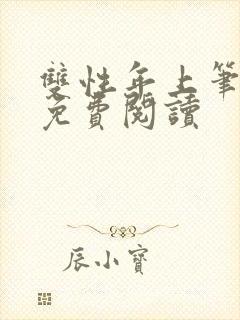 雙性年上筆
免費閱讀
辰小寶